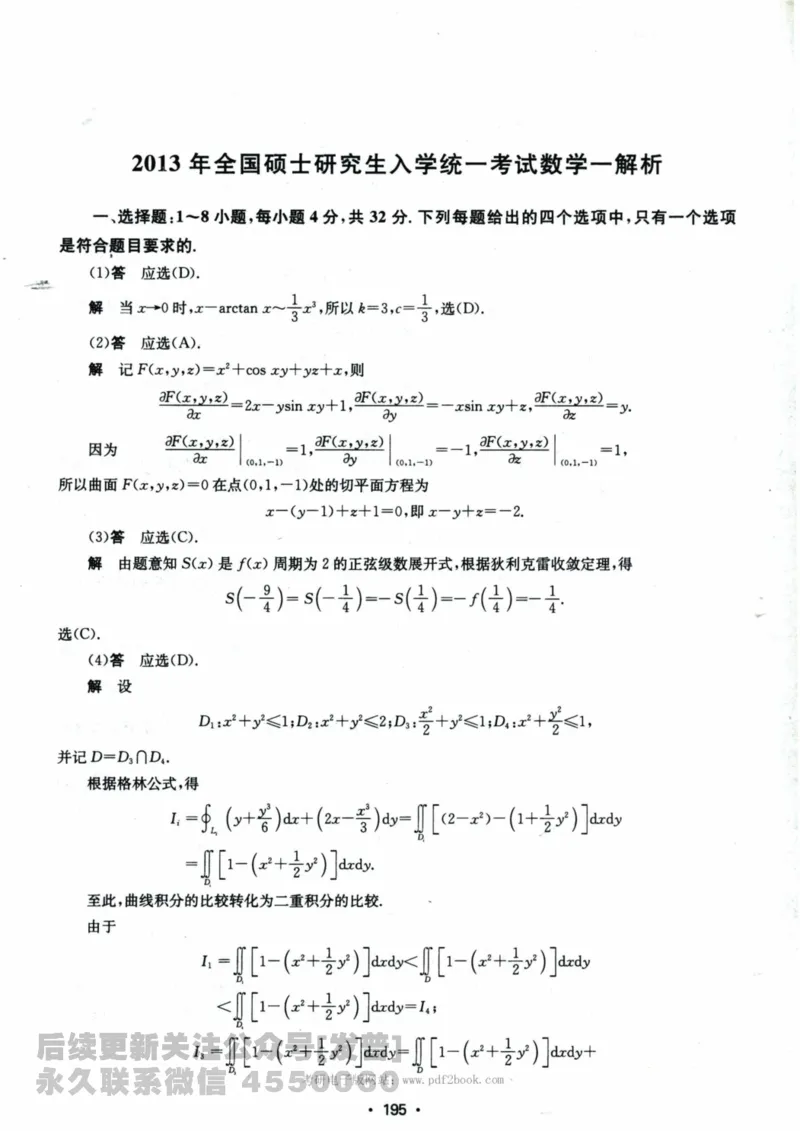 2013 年全国硕士研究生入学统一考试数学一解析
一、选择题:1~8 小题,每小题 4 分,共 32 分. 下列每题给出的四个选项中,只有一个选项
是符合题目要求的.
(1)答 应选(D).
解 当 x→0 时,x−arctan x~1/3 x³,所以 k=3,c=1/3,选(D).
(2)答 应选(A).
解 记 F(x,y,z)=x²+cos xy+yz+x,则
∂F(x,y,z)/∂x=2x−ysin xy+1,∂F(x,y,z)/∂y=−xsin xy+z,∂F(x,y,z)/∂z=y.
因为 ∂F(x,y,z)/∂x|(0,1,−1)=1,∂F(x,y,z)/∂y|(0,1,−1)=−1,∂F(x,y,z)/∂z|(0,1,−1)=1,
所以曲面 F(x,y,z)=0 在点(0,1,−1)处的切平面方程为
x−(y−1)+z+1=0,即 x−y+z=−2.
(3)答 应选(C).
解 由题意知 S(x) 是 f(x) 周期为 2 的正弦级数展开式,根据狄利克雷收敛定理,得
S(−9/4)=S(−1/4)=−S(1/4)=−f(1/4)=−1/4.
选(C).
(4)答 应选(D).
解 设
D₁:x²+y²≤1;D₂:x²+y²≤2;D₃:x²/2+y²≤1;D₄:x²+y²/2≤1,
并记 D=D₃∩D₄.
根据格林公式,得
Iᵢ=∮_{Lᵢ}(y+y³/6)dx+(2x−x³/3)dy=∬_{Dᵢ}[(2−x²)−(1+1/2 y²)]dxdy
=∬_{Dᵢ}[1−(x²+1/2 y²)]dxdy.
至此,曲线积分的比较转化为二重积分的比较.
由于
I₁=∬_{D₁}[1−(x²+1/2 y²)]dxdy<∬_{D}[1−(x²+1/2 y²)]dxdy
<∬_{D₄}[1−(x²+1/2 y²)]dxdy=I₄;
I₃=∬_{D₃}[1−(x²+1/2 y²)]dxdy=∬_{D}[1−(x²+1/2 y²)]dxdy+
后续更新关注公众号[发普]
永久联系微信 4550060
考研电子版网站: www.pdf2book.com
• 195 •